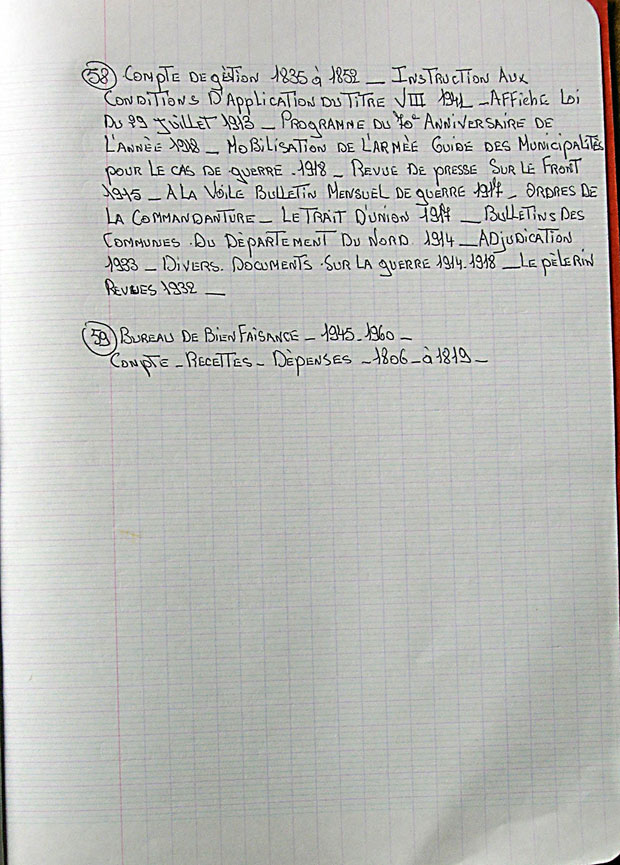 58 COMPTE DE GÈTION 1835 à 1852 _ INSTRUCTION AUX
CONDITIONS D'APPLICATION DU TITRE VIII 1941 _ AFFICHE LOI
DU 29 JUILLET 1913 _ PROGRAMME DU 70e ANNIVERSAIRE DE
L'ANNÈE 1918 _ MOBILISATION DE L'ARMÈE GUIDE DES MUNICIPALITÉS
POUR LE CAS DE GUERRE . 1918 _ REVUE DE PRESSE SUR LE FRONT
1945 _ A LA VOILE BULLETIN MENSUEL DE GUERRE 1917 _ ORDRES DE
LA COMMANDANTURE _ LE TRAIT D'UNION 1917 _ BULLETINS DES
COMMUNES . DU DÈPARTEMENT DU NORD 1914 _ ADJUDICATION
1933 _ DIVERS . DOCUMENTS . SUR LA GUERRE 1914.1918 _ LE PÈLERIN
REVUES 1932 _
59 BUREAU DE BIENFAISANCE _ 1945_1960 _
COMPTE _ RECETTES _ DÈPENSES _ 1806 _ à 1819 _